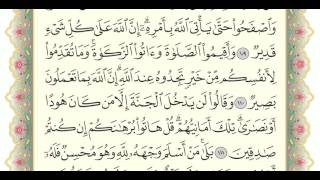 وَٱصْفَحُوا۟ حَتَّىٰ يَأْتِىَ ٱللَّهُ بِأَمْرِهِۦٓ إِنَّ ٱللَّهَ عَلَىٰ كُلِّ شَىْءٍ
قَدِيرٌ ١٠٩ وَأَقِيمُوا۟ ٱلصَّلَوٰةَ وَءَاتُوا۟ ٱلزَّكَوٰةَ وَمَا تُقَدِّمُوا۟
لِأَنفُسِكُم مِّنْ خَيْرٍ تَجِدُوهُ عِندَ ٱللَّهِ إِنَّ ٱللَّهَ بِمَا تَعْمَلُونَ
بَصِيرٌ ١١٠ وَقَالُوا۟ لَن يَدْخُلَ ٱلْجَنَّةَ إِلَّا مَن كَانَ هُودًا
أَوْ نَصَٰرَىٰ تِلْكَ أَمَانِيُّهُمْ قُلْ هَاتُوا۟ بُرْهَٰنَكُمْ إِن كُنتُمْ
صَٰدِقِينَ ١١١ بَلَىٰ مَنْ أَسْلَمَ وَجْهَهُۥ لِلَّهِ وَهُوَ مُحْسِنٌ فَلَهُۥٓ